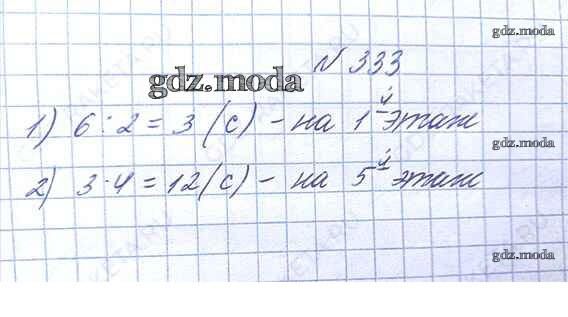 gdz.moda
№ 333
gdz.moda
1) 6 : 2 = 3 (с) - на 1й этаж
gdz.moda
2) 3 · 4 = 12 (с) - на 5й этаж
gdz.moda